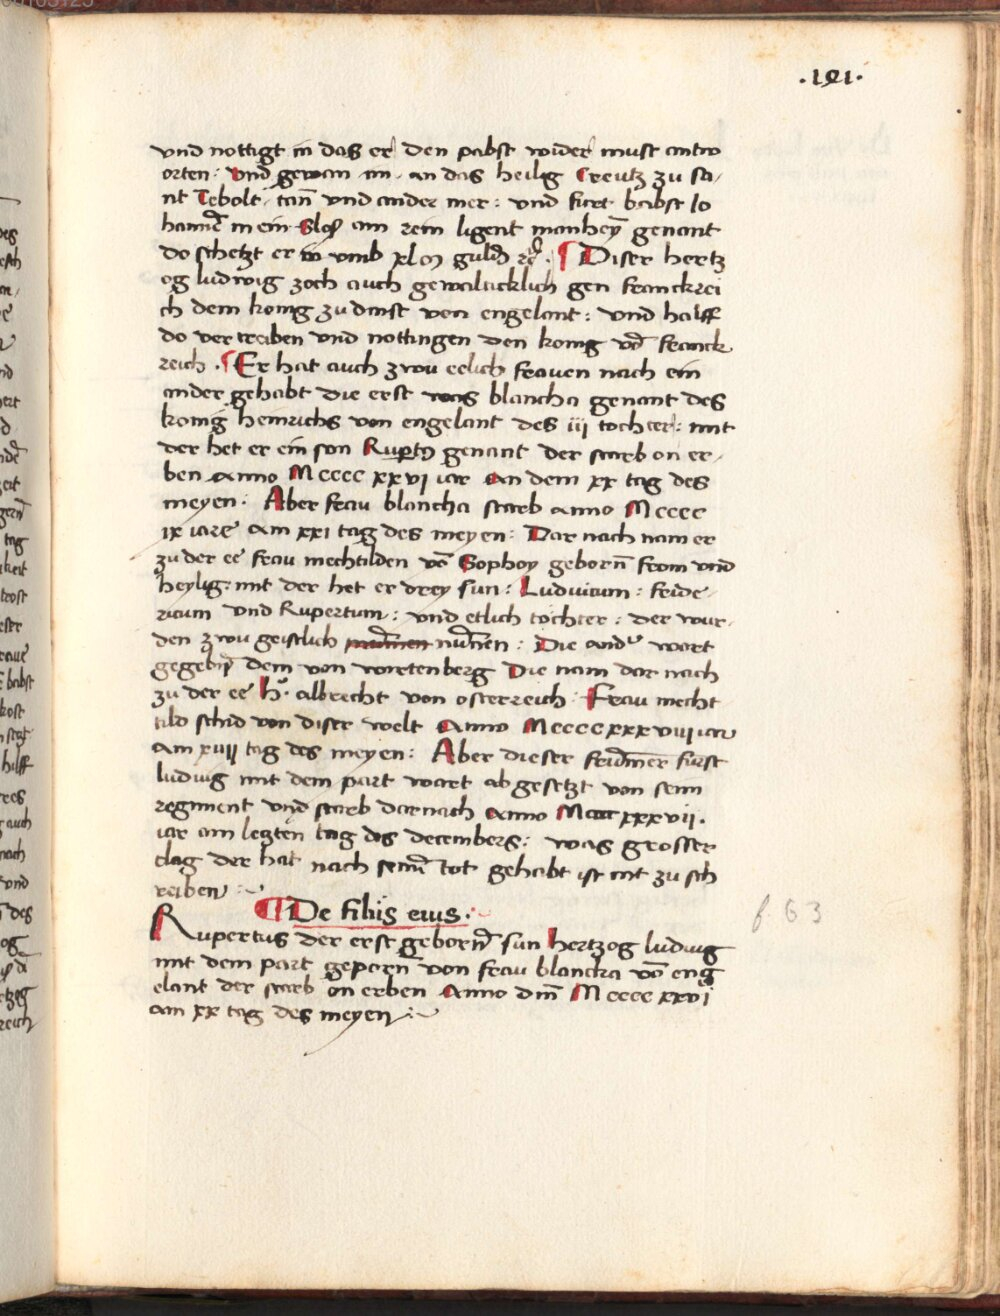 .191.
vnd nottigt in das er den pabst wider must antw
orten: Vnd gewan im an das heilig Creutz zu sa,
nt Tebolt, tan̄ vnd ander mer: vnd furt babst Jo
hannē in ein Sloß am rein ligent manheȳ genant
do schetzt er in vmb xlm guldē ¶ Diser hertz
og ludwig zoch auch gewalticklich gen franckrei
ch dem konig zu dinst von engelant: vnd halff
do vertreiben vnd nottingen den konig vō franck
reich. ¶ Er hat auch zwu eelich frauen nach ein
ander gehabt die erst was blancha genant des
konig heinrichs von engelant des iii tochter: mit
der het er ein son Ruptꝰ genant der starb on er,
ben anno Mcccc xxvi iar an dem xx tag des
meyen: Aber frau blancha starb anno Mcccc
ix iare am xxi tag des meyen: Dar nach nam er
zu der ee frau mechtilden vō Sophoy geborn̄ from vnd
heylig: mit der het er drey sun: Luduicum: fride,
ricum vnd Rupertum: vnd etlich tochter: der wur,
den zwu geistlich nūnen: Die and' wart
gegebn̄ dem von wirtenberg Die nam dar nach
zu der ee h. albrecht von osterreich: Frau mecht
tild schid von diser welt Anno Mcccc xxxviii iar
am xviii tag des meyen: Aber dieser frūmer furst
ludwig mit dem part wart ab gesetzt von seim
regiment vnd starb darnach anno Mcccc xxxvii.
iar am letzten tag des decembers: was grosser
clag der hat nach seinē tot gehabt ist nit zu sch
reiben:
¶ De filiis eius.
Rupertus der erst geborn̄ sun hertzog ludwig
mit dem part geporn̄ von frau blancka vō eng
elant der starb on erben Anno dm̄ Mcccc xxvi
am xx tag des meyen:
f. 63